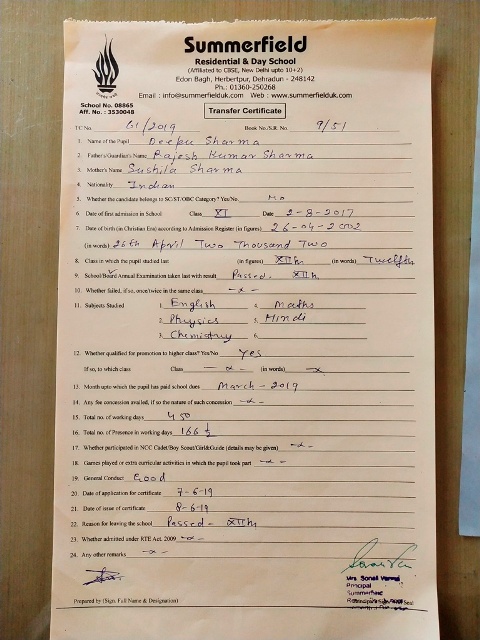 Summerfield
Residential & Day School
(Affiliated to CBSE, New Delhi upto 10+2)
Edon Bagh, Herbertpur, Dehradun - 248142
Ph.: 01360-250268
Email : info@summerfielduk.com Web : www.summerfielduk.com
School No. 08865
Aff. No. : 3530048
Transfer Certificate
TC No. 61/2019 Book No./S.R. No. 9/51
1 Name of the Pupil Deepu Sharma
2 Father's/Guardian's Name Rajesh Kumar Sharma
3 Mother's Name Sushila Sharma
4 Nationality Indian
5. Whether the candidate belongs to SC/ST/OBC Category? Yes/No No
6. Date of first admission in School Class XI Date 2-8-2017
7. Date of birth (in Christian Era) according to Admission Register (in figures) 26-04-2002
(in words) 26th April Two Thousand Two
8. Class in which the pupil studied last (in figures) XIIth (in words) Twelfth
9. School/Board Annual Examination taken last with result Passed. XIIth
10. Whether failed, if so, once/twice in the same class -x-
11. Subjects Studied 1. English 2. Maths
2. Physics 5. Hindi
3. Chemistry 6.
12. Whether qualified for promotion to higher class? Yes/No Yes
If so, to which class Class -x- (in words) -x
13. Month upto which the pupil has paid school dues March - 2019
14. Any fee concession availed, if so the nature of such concession -x-
15. Total no. of working days 450
16. Total no. of Presence in working days 166 ½
17. Whether participated in NCC Cadet/Boy Scout/Girl&Guide (details may be given) -x-
18. Games played or extra curricular activities in which the pupil took part -x-
19. General Conduct Good
20. Date of application for certificate 7-6-19
21. Date of issue of certificate 8-6-19
22. Reason for leaving the school Passed - XIIth
23. Whether admitted under RTE Act. 2009 -x-
24. Any other remarks -x-
Mrs. Sonali
Principal
Summerfield
Prepared by (Sign. Full Name & Designation) Seal